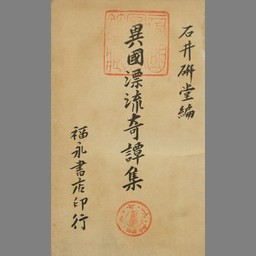 石井研堂編
異國漂流奇譚集
福永書店印行